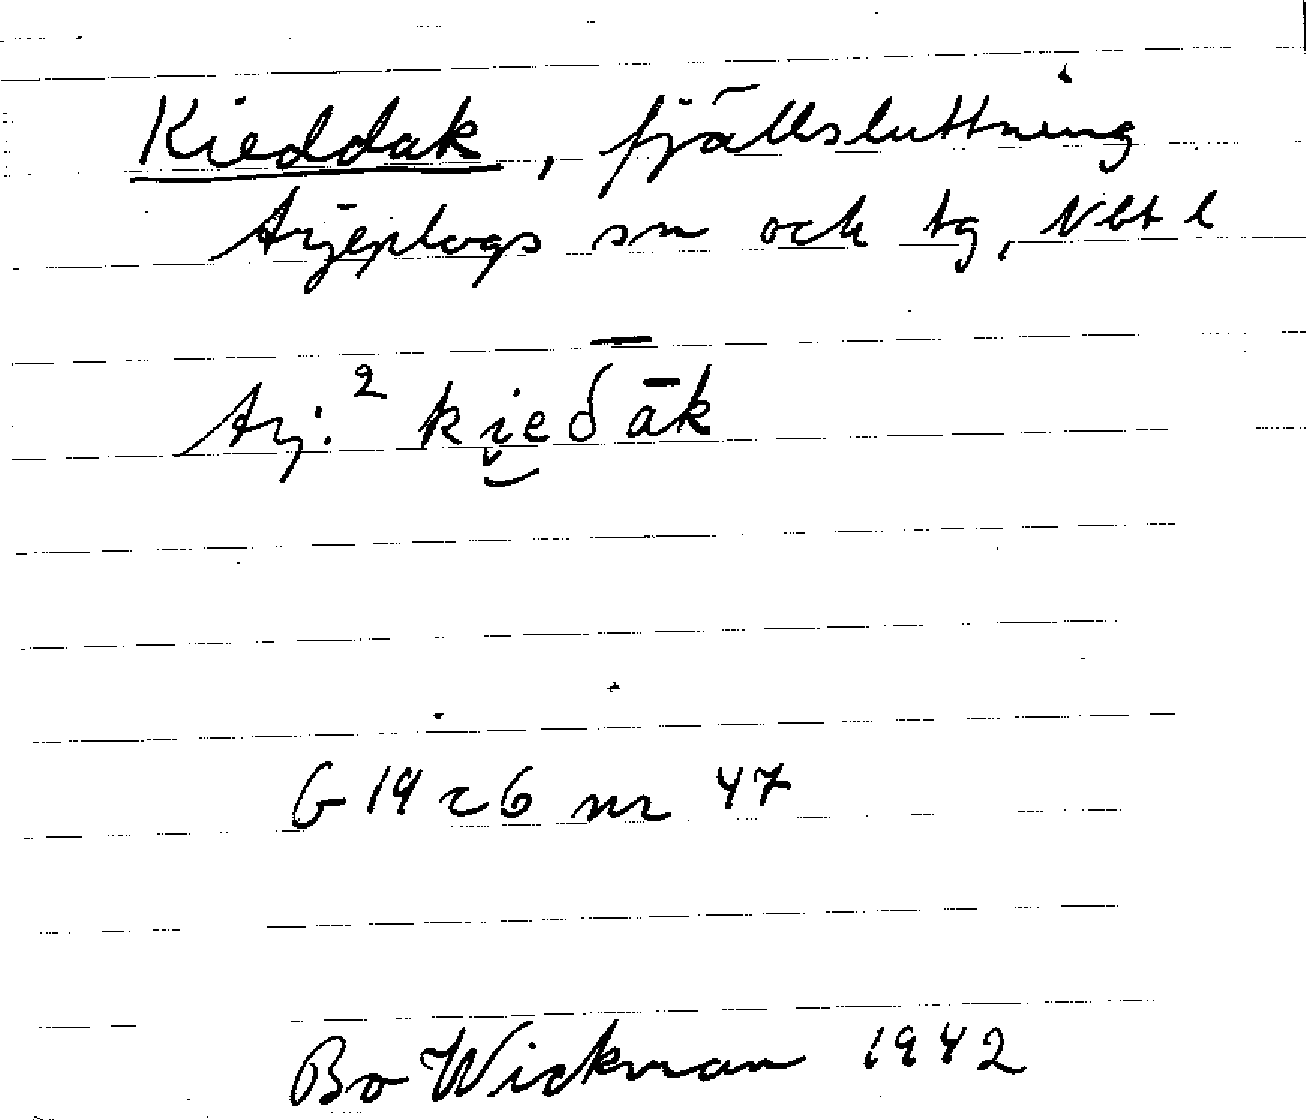 Kieddak, fjällsluttning
Arjeplogs sn och tg, Nbt l
Arj.² ki̮eδ̄āk
G 19 c 6 nr 47
Bo Wickman 1942